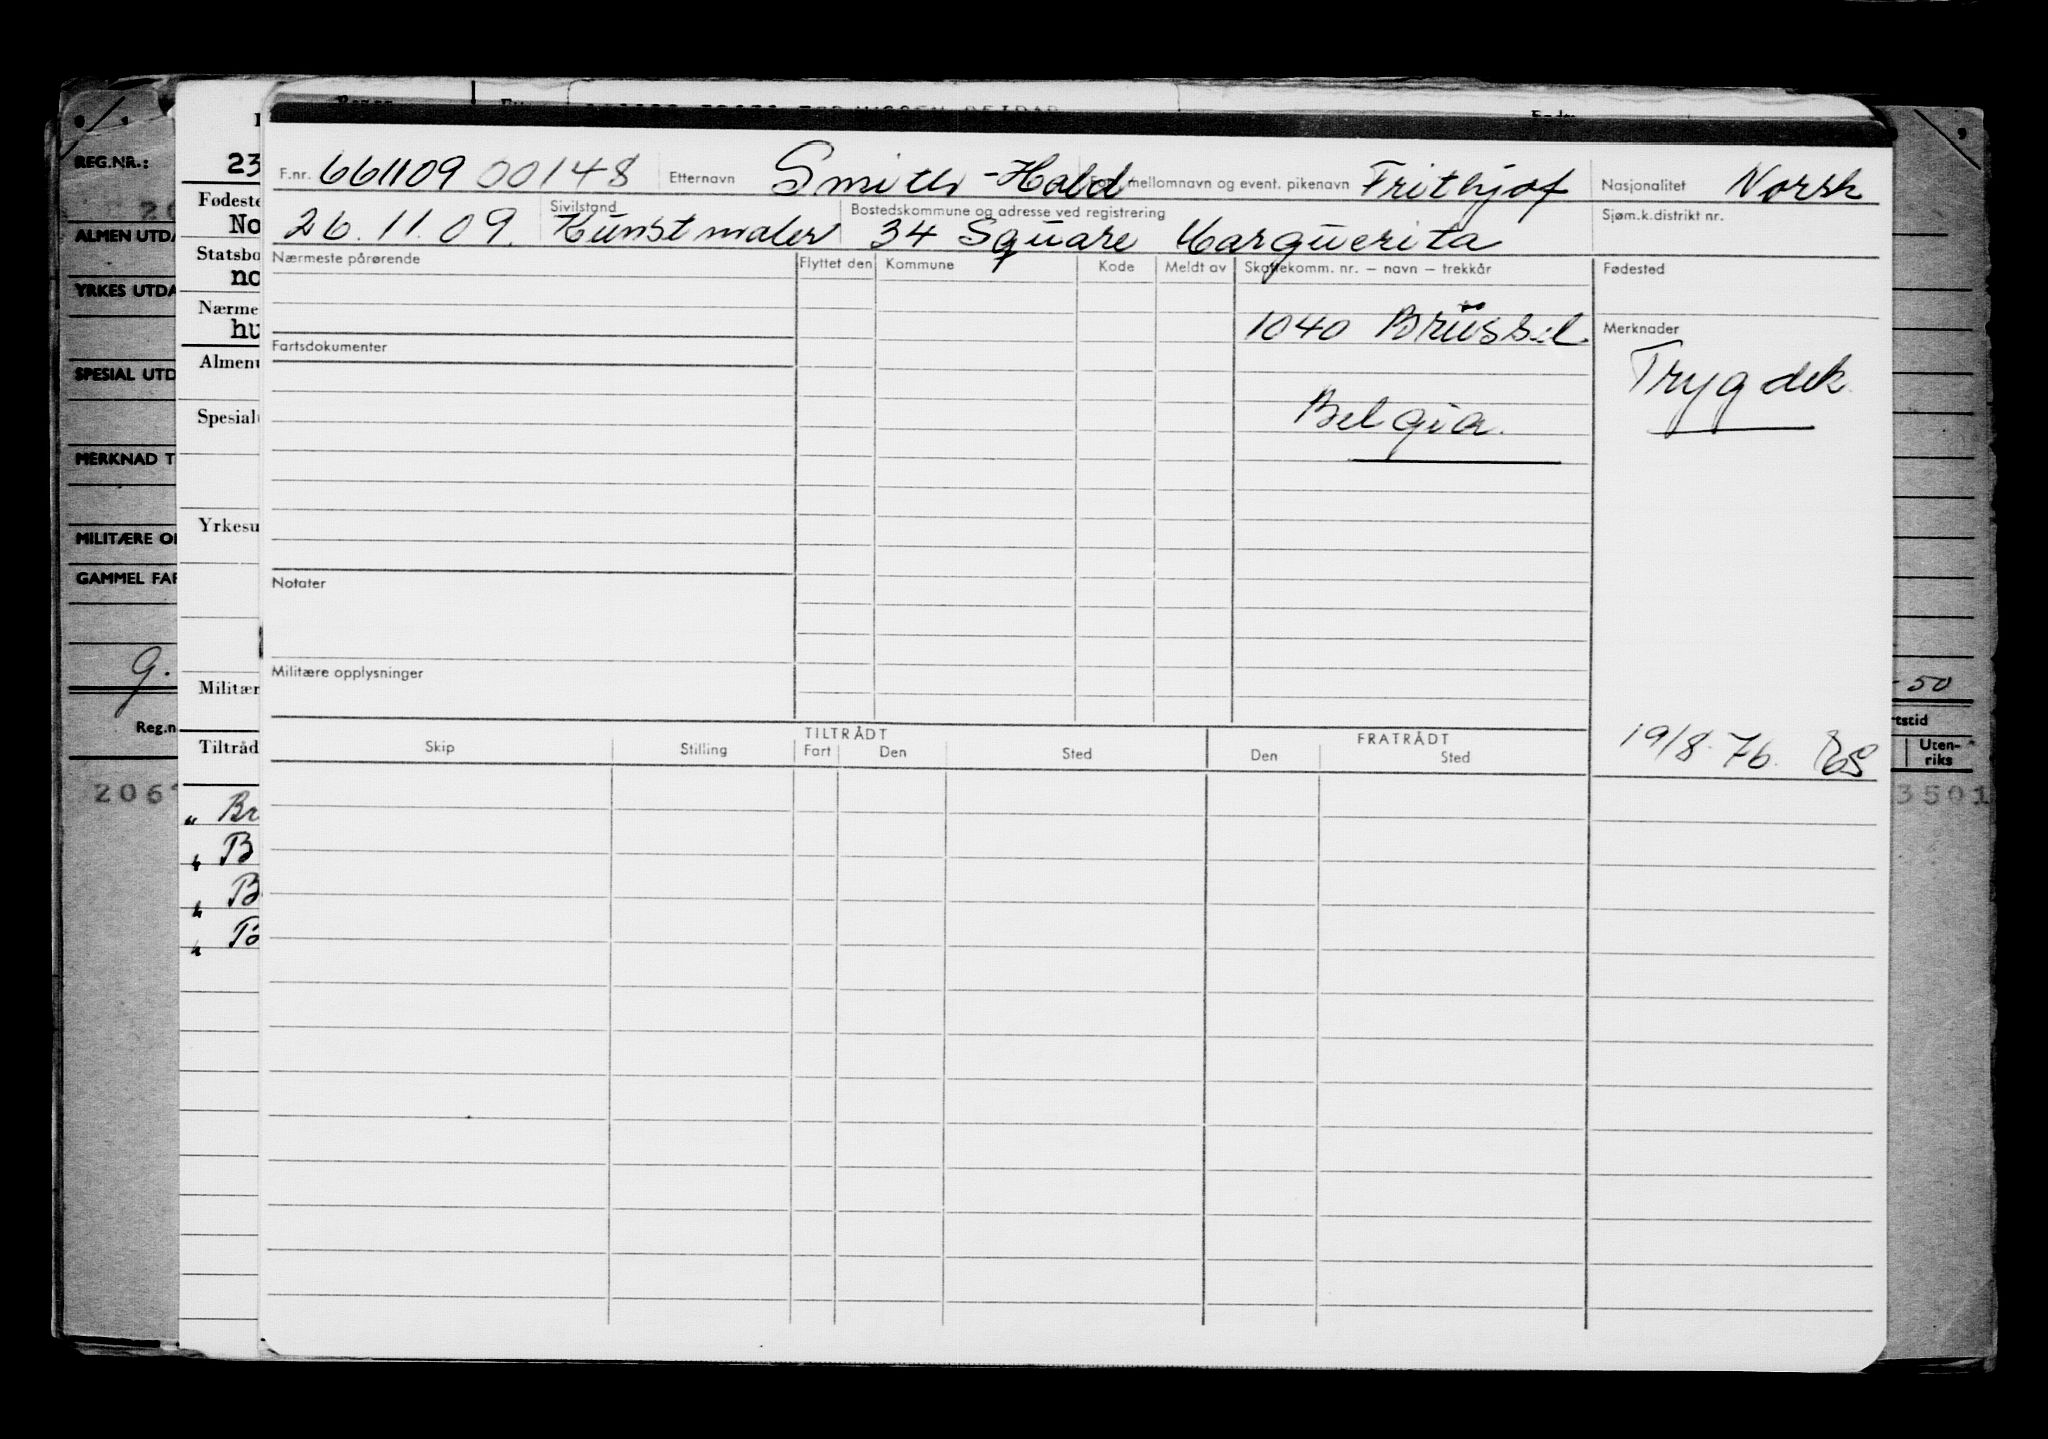 REG.NR.:
ALMEN UTDA
YRKES UTDA
SPESIAL UTD
MERKNAD T
MILITÆRE O
GAMMEL FAR
g.
Reg.n
206
23
Fødeste
No
Statsbo
no
Nærme
hu
Almenu
Spesial
Yrkesu
Militær
Tiltråd
" Br
" B
" B
" B
F.nr. 661109 00148 Etternavn Smith-Hald For-, mellomnavn og event. pikenavn Frithjof Nasjonalitet Norsk
26.11.09. Sivilstand Kunstmaler Bostedskommune og adresse ved registrering 34 Square Marguerita Sjøm.k.distrikt nr.
Nærmeste pårørende Flyttet den Kommune Kode Meldt av Skattekomm. nr. – navn – trekkår Fødested
1040 Brüssel Merknader
Fartsdokumenter Trygdek.
Belgia.
Notater
Militære opplysninger
TILTRÅDT FRATRÅDT 19/8-76.
Skip Stilling Fart Den Sted Den Sted
- 50
rtstid
Uten-
riks
3501